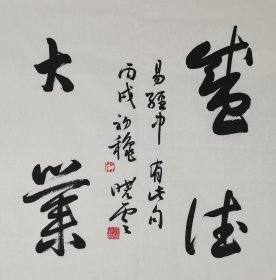 盛德
大業
易經中有此句
丙戌初秋曉雲